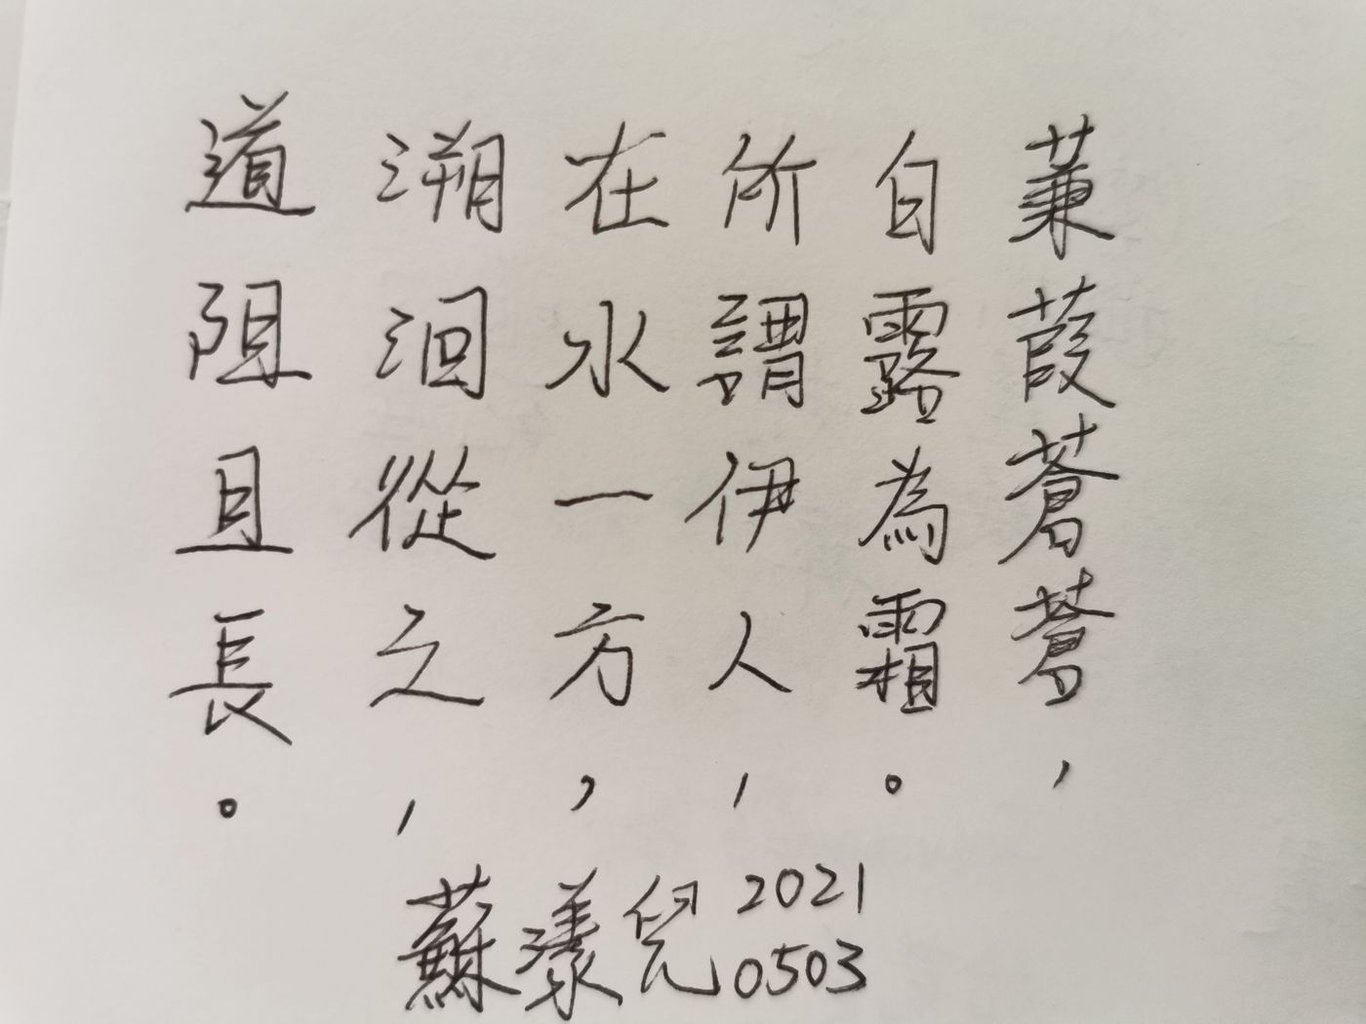 蒹葭蒼蒼，
白露為霜。
所謂伊人，
在水一方，
溯洄從之，
道阻且長。
蘇漾兒
2021
0503